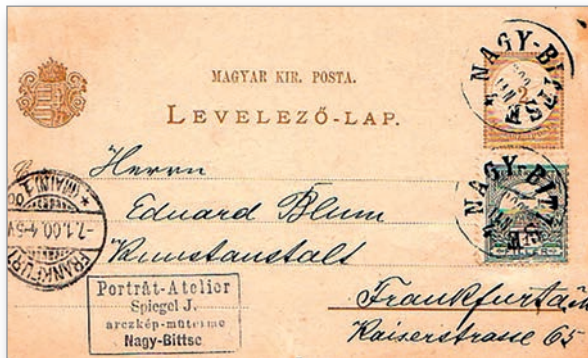 MAGYAR KIR. POSTA.
LEVELEZŐ-LAP.
NAGY-BITTSE
2
NAGY-BITTSE
1
FILLÉR
Herrn
Eduard Blum
Kunstanstalt
Frankfurt a/m
Kaiserstrasse 65
FRANKFURT
(MAIN) 1
-7.1.00.4-5V
Porträt-Atelier
Spiegel J.
arczkép-műterme
Nagy-Bittse